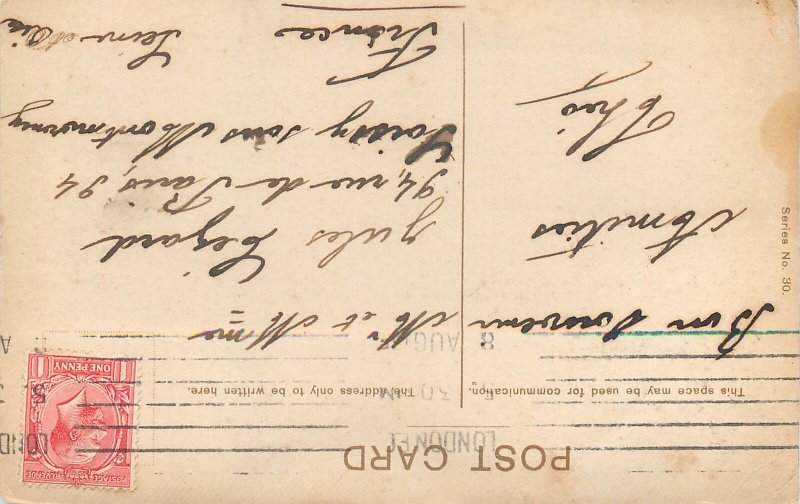 POST CARD
This space may be used for communication.
The Address only to be written here.
LONDON E.C
30
8 AUG
5
ONE PENNY
POSTAGE REVENUE
Bon Souvenir
Amitiés
Series No. 30.
Mr et Mme
Jules
94, rue de Paris, 94
sous Montmorency
France
Seine et Oise